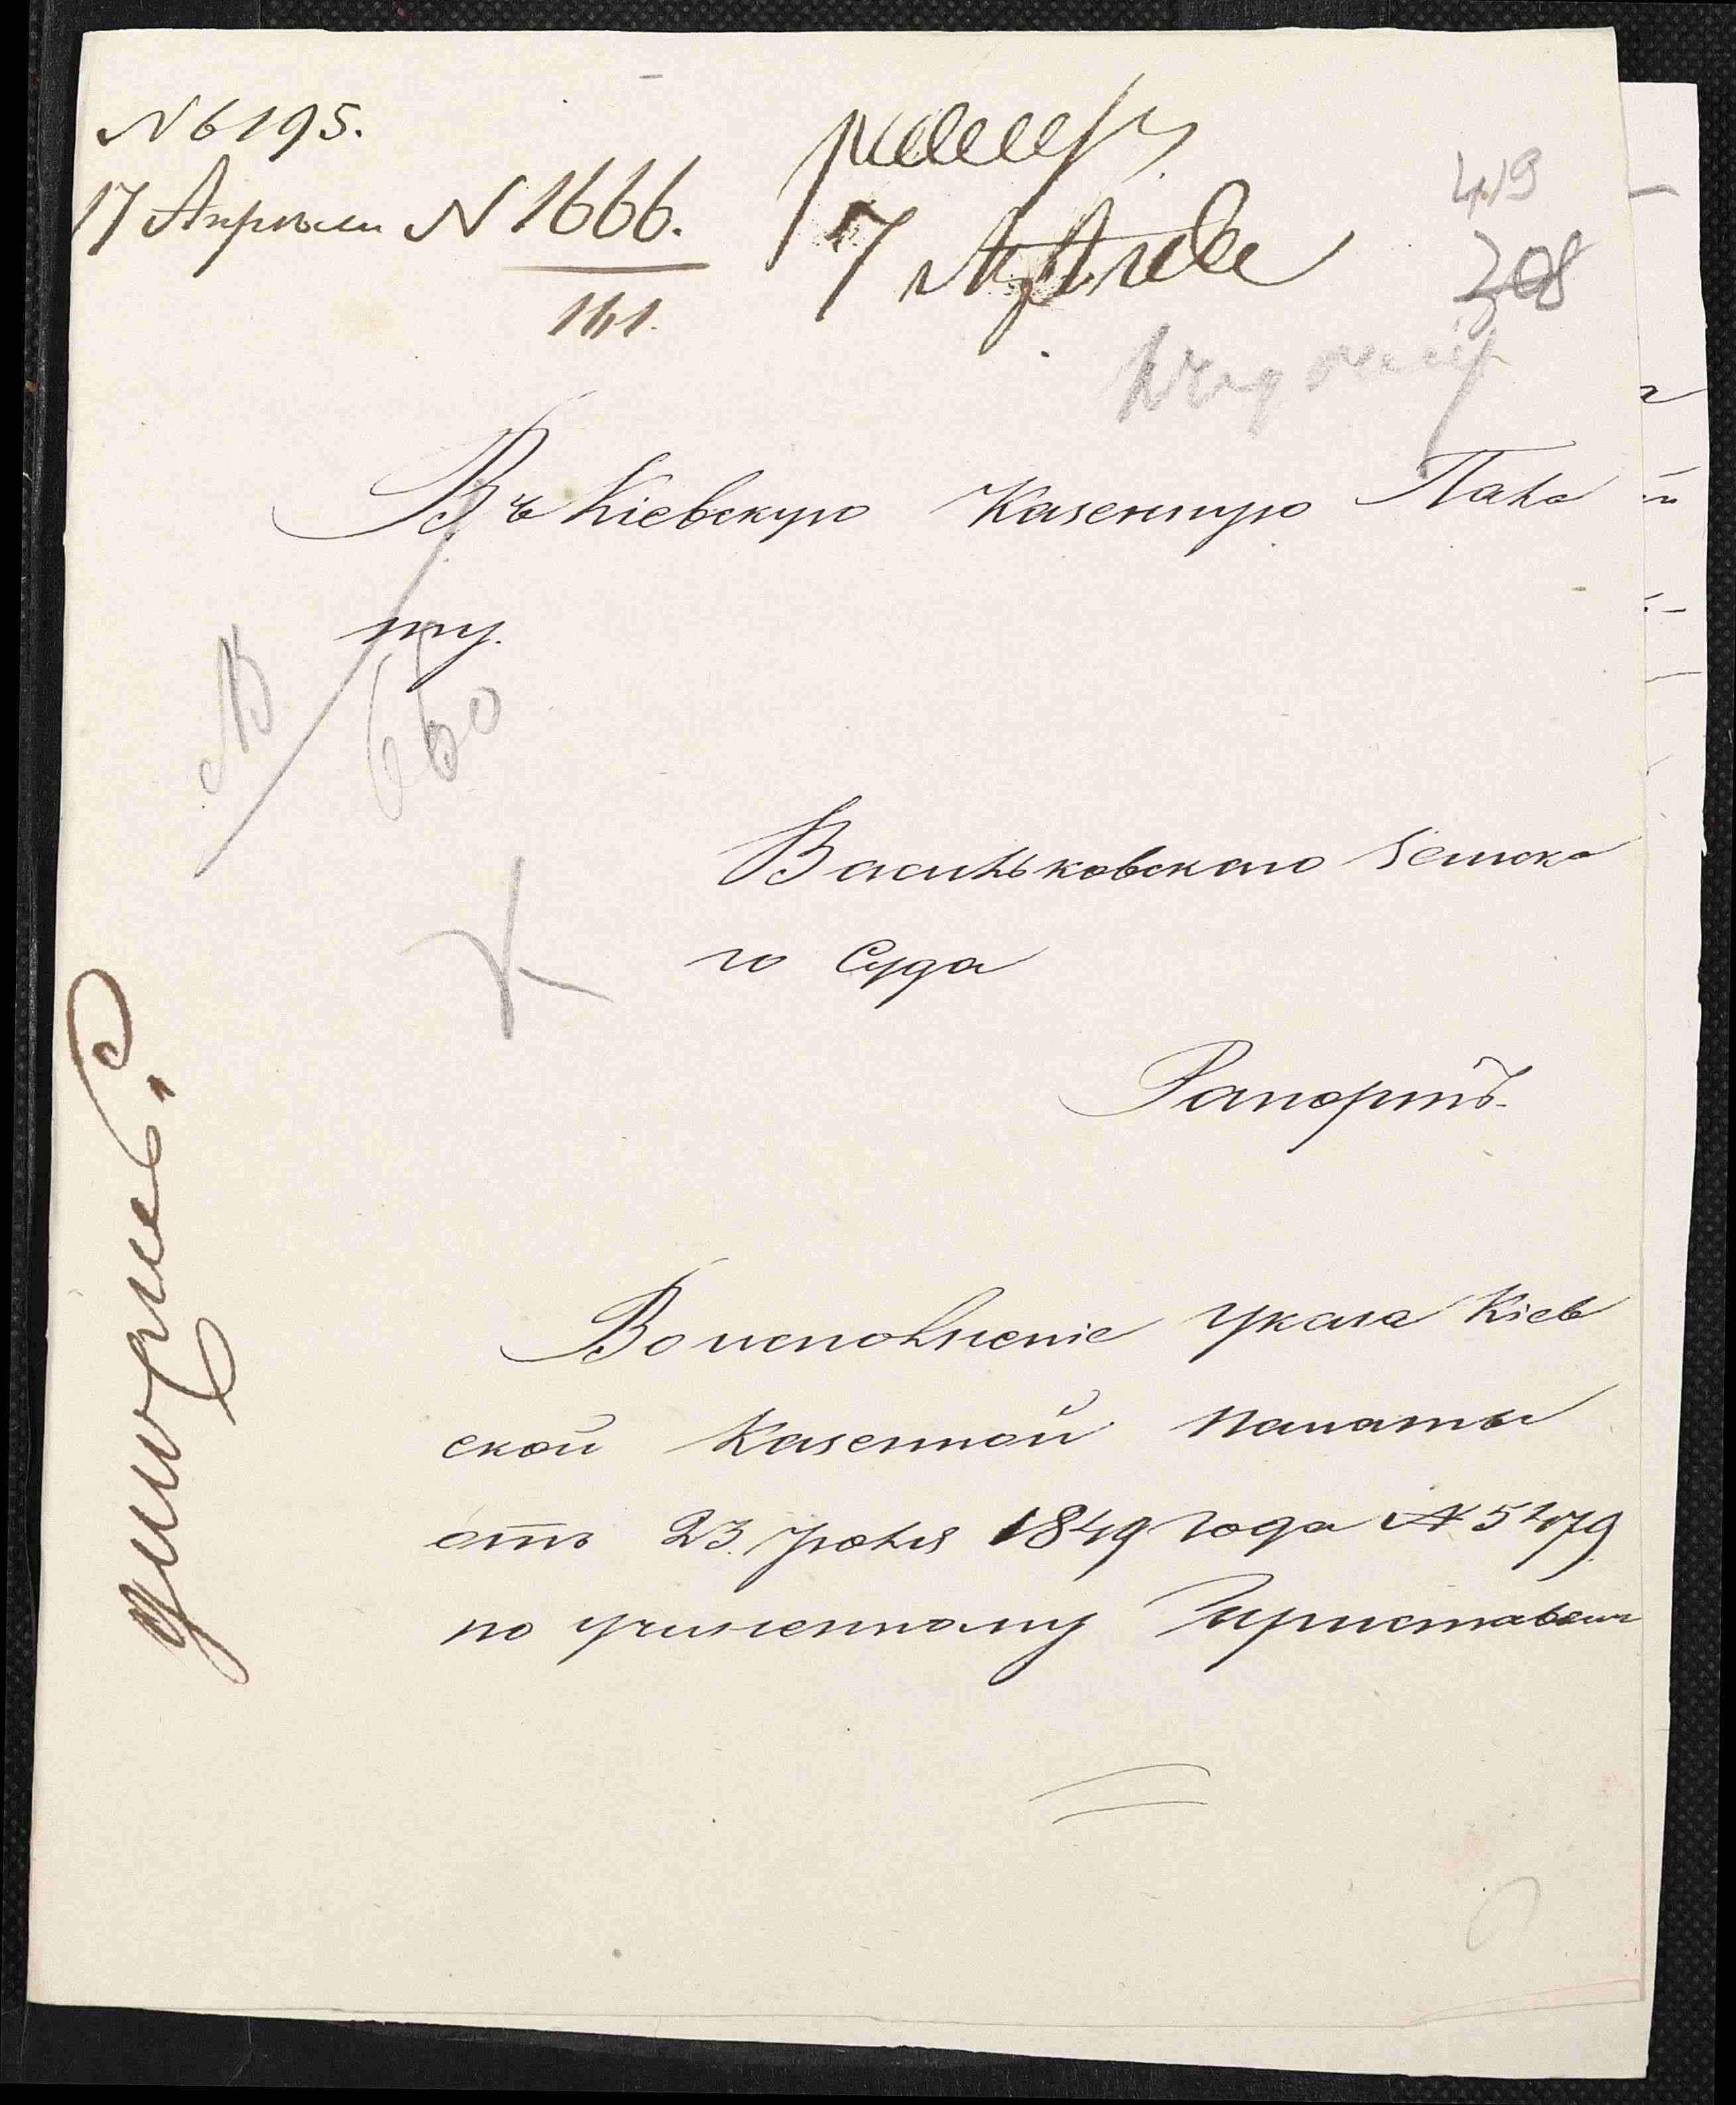 № 6195.
17 Апрѣля № 1666.
161.
7 Апреля
419
308
Въ Кіевскую Казенную Пала
ту.
660
Васильковскаго Земска
го Суда
Рапортъ.
Во исполненіе Указа Кіев
ской Казенной Палаты
отъ 23. Іюля 1849 года № 5479
по учиненному Приставом